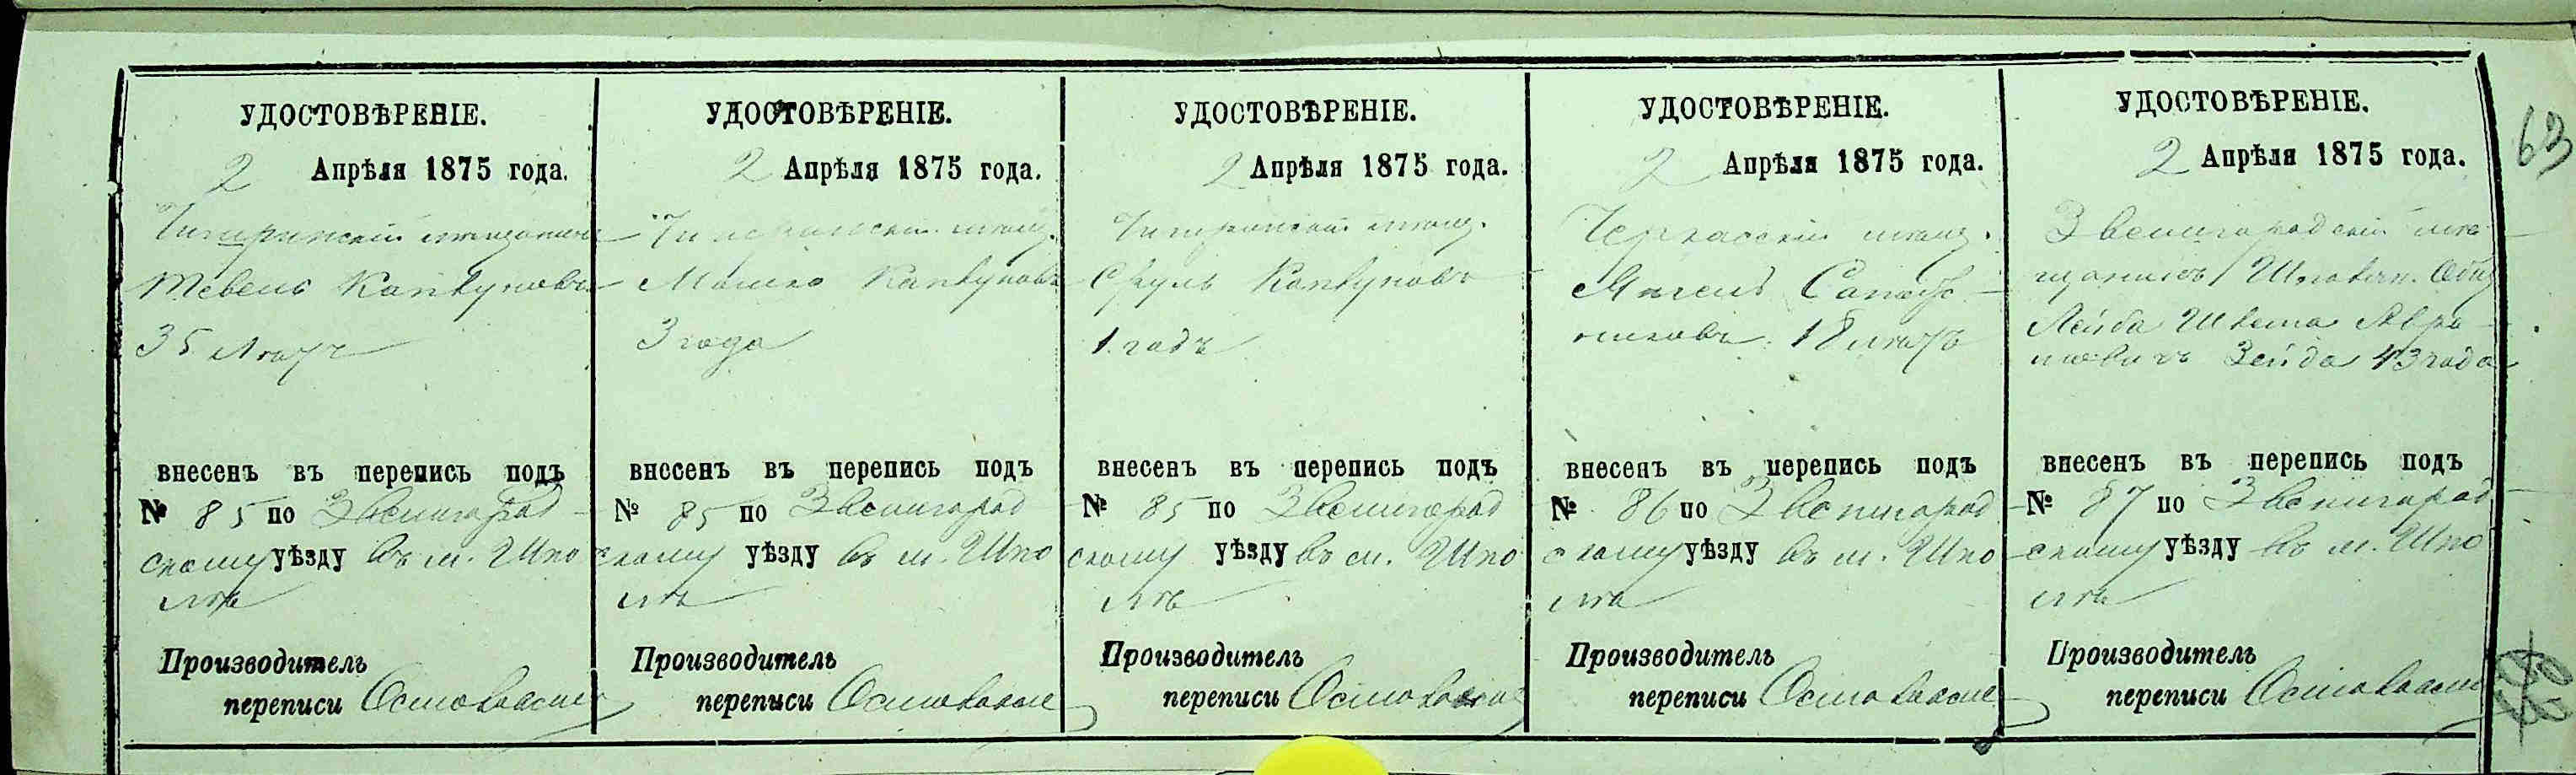 УДОСТОВѢРЕНІЕ.
2 Апрѣля 1875 года.
Чигиринскій мѣщанинъ
Тевель Капкуновъ
35 лѣтъ
внесенъ въ перепись подъ
№ 85 по Звенигород
скому уѣзду въ м. Шпо
лѣ
Производитель
переписи
УДОСТОВѢРЕНІЕ.
2 Апрѣля 1875 года.
Чигиринскій мѣщ.
Мошко Капкуновъ
3 года
внесенъ въ перепись подъ
№ 85 по Звенигород
скому уѣзду въ м. Шпо
лѣ
Производитель
переписи
УДОСТОВѢРЕНІЕ.
2 Апрѣля 1875 года.
Чигиринскій мѣщ.
Сруль Капкуновъ
1 годъ
внесенъ въ перепись подъ
№ 85 по Звенигород
скому уѣзду въ м. Шпо
лѣ
Производитель
переписи
УДОСТОВѢРЕНІЕ.
2 Апрѣля 1875 года.
Черкасскій мѣщ.
Сапож
никовъ 18 лѣтъ
внесенъ въ перепись подъ
№ 86 по Звенигород
скому уѣзду въ м. Шпо
лѣ
Производитель
переписи
УДОСТОВѢРЕНІЕ.
2 Апрѣля 1875 года.
Звенигородскій мѣ
щанинъ Шполян. Общ
Лейба Авра
мовичъ Зейда 43 года
внесенъ въ перепись подъ
№ 87 по Звенигород
скому уѣзду въ м. Шпо
лѣ
Производитель
переписи
63